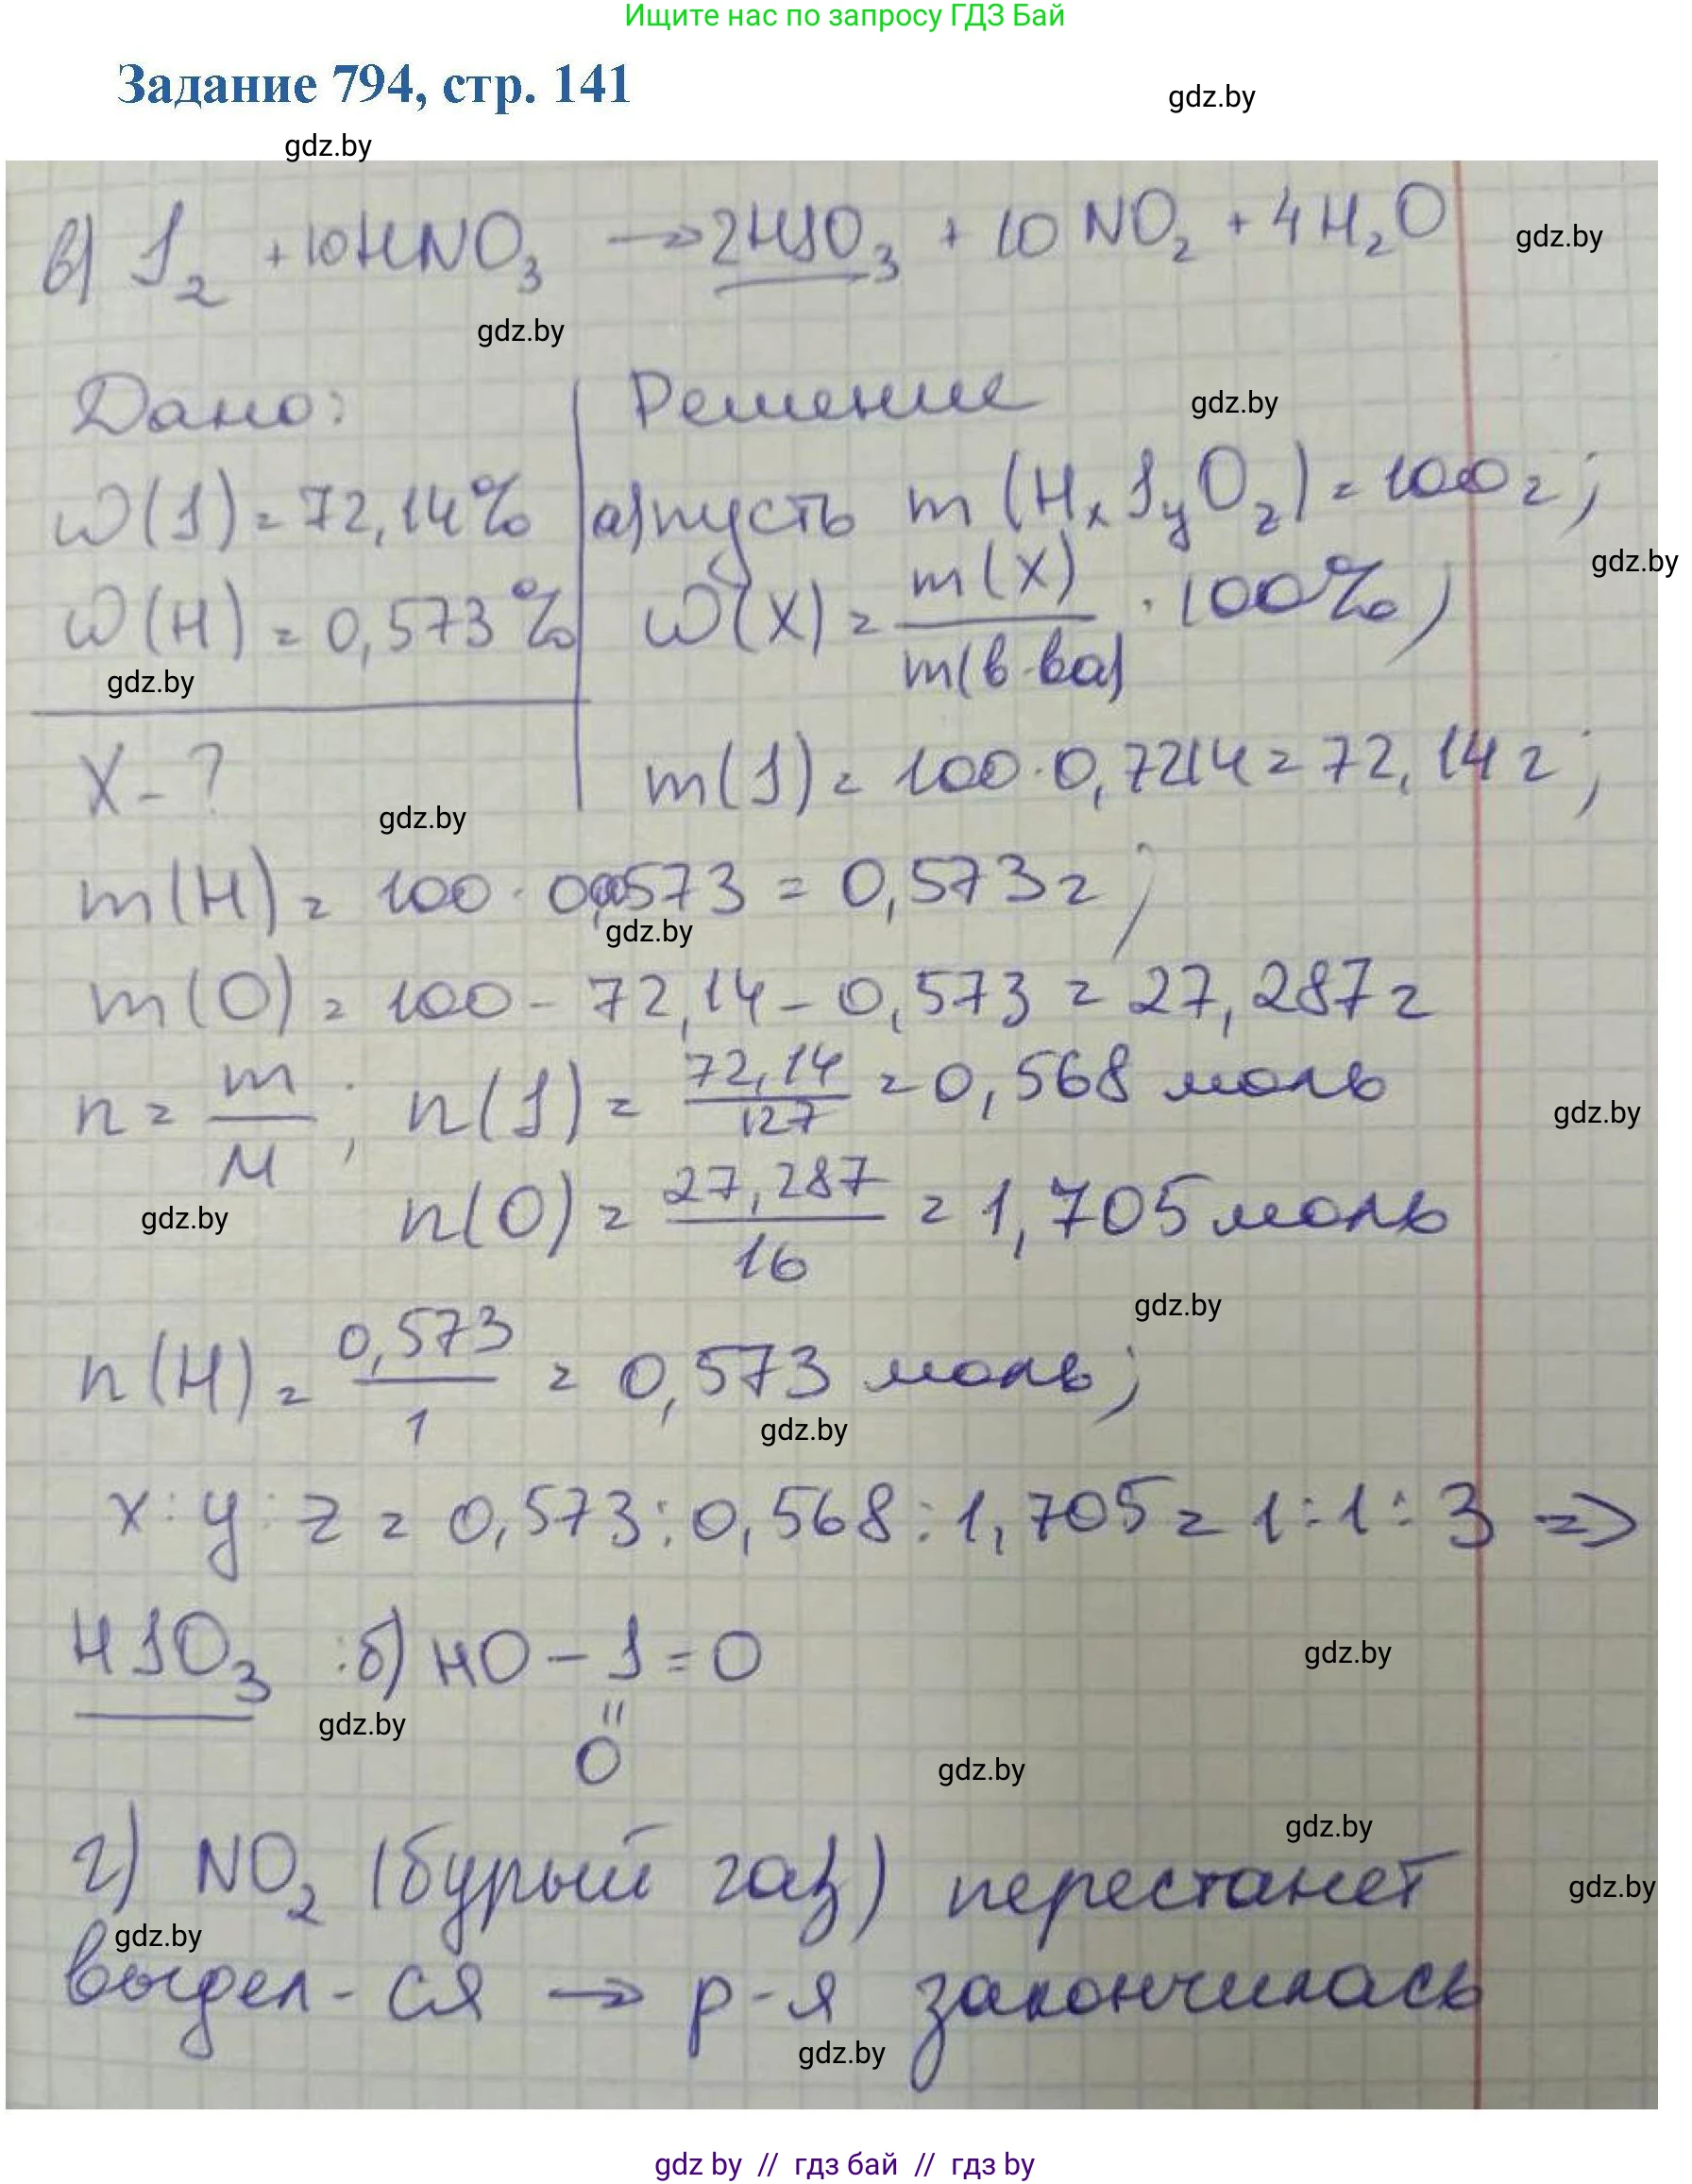 Ищите нас по запросу ГДЗ Бай
Задание 794, стр. 141
gdz.by
gdz.by
в) J₂ + 10HNO₃ → 2HJO₃ + 10 NO₂ + 4H₂O
gdz.by
gdz.by
Дано: Решение
gdz.by
ω(J) = 72,14% а) пусть m (HₓJᵧO_z) = 100 г;
gdz.by
ω(H) = 0,573% ω(X) = m(X) / m(в-ва) · 100%;
gdz.by
X - ? m(J) = 100 · 0,7214 = 72,14 г;
gdz.by
m(H) = 100 · 0,00573 = 0,573 г;
gdz.by
m(O) = 100 - 72,14 - 0,573 = 27,287 г
n = m / M; n(J) = 72,14 / 127 = 0,568 моль
gdz.by
n(O) = 27,287 / 16 = 1,705 моль
gdz.by
gdz.by
n(H) = 0,573 / 1 = 0,573 моль;
gdz.by
x : y : z = 0,573 : 0,568 : 1,705 = 1 : 1 : 3 =>
HJO₃ ; б) HO - J = O
gdz.by
॥
gdz.by
O
gdz.by
gdz.by
г) NO₂ (бурый газ) перестанет
gdz.by
gdz.by
выдел-ся → р-я закончилась
gdz.by
gdz.by // гдз бай // гдз by